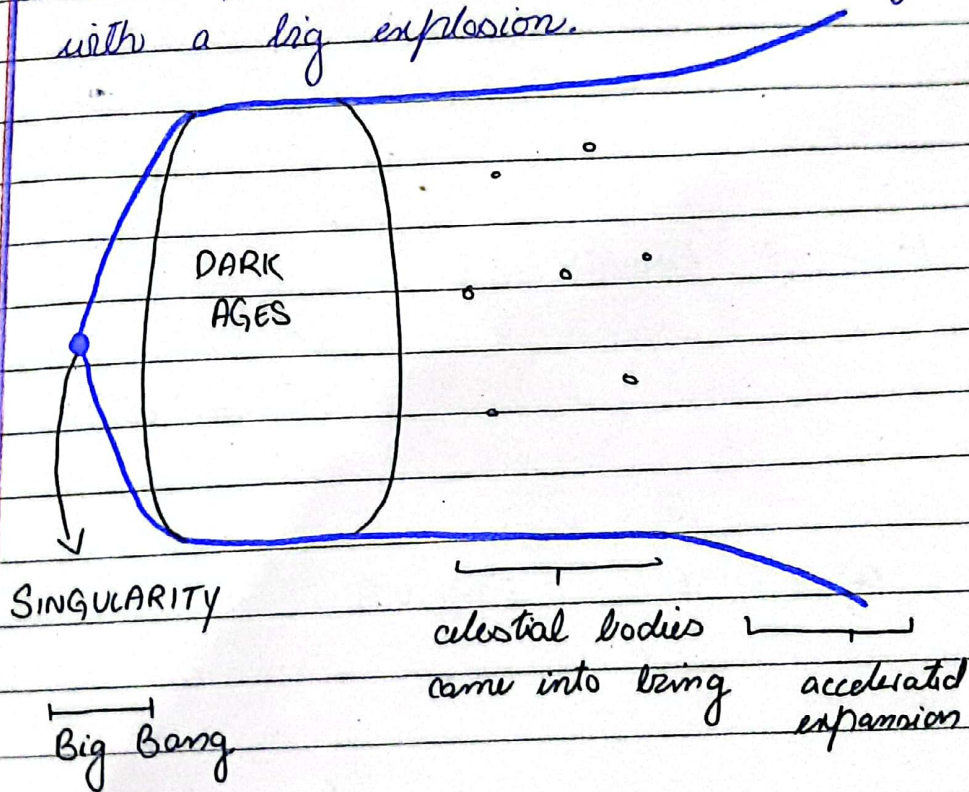 with a big explosion.
DARK
AGES
SINGULARITY
celestial bodies
came into being
accelerated
expansion
Big Bang